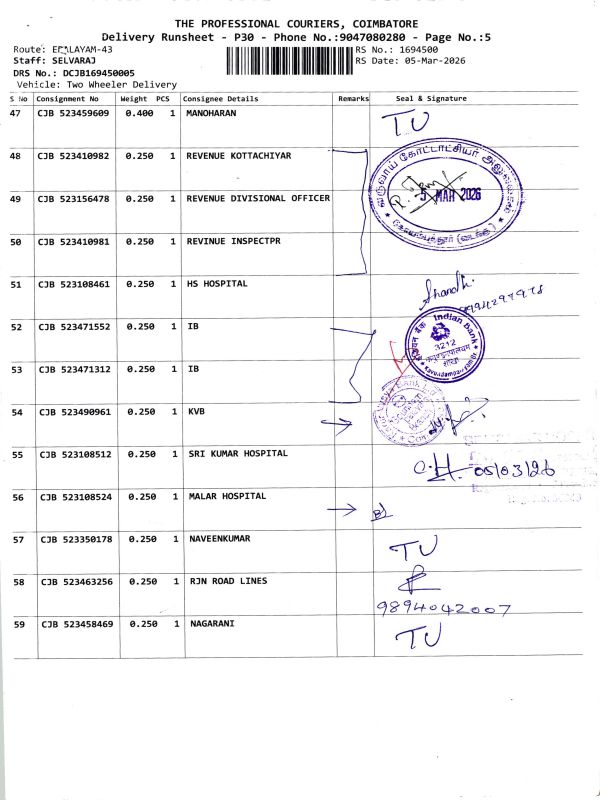 THE PROFESSIONAL COURIERS, COIMBATORE
Delivery Runsheet - P30 - Phone No.:9047080280 - Page No.:5
Route: EDALAYAM-43 RS No.: 1694500
Staff: SELVARAJ RS Date: 05-Mar-2026
DRS No.: DCJB169450005
Vehicle: Two Wheeler Delivery
S No Consignment No Weight PCS Consignee Details Remarks Seal & Signature
47 CJB 523459609 0.400 1 MANOHARAN TU
48 CJB 523410982 0.250 1 REVENUE KOTTACHIYAR
49 CJB 523156478 0.250 1 REVENUE DIVISIONAL OFFICER
5 MAR 2026
50 CJB 523410981 0.250 1 REVINUE INSPECTPR
51 CJB 523108461 0.250 1 HS HOSPITAL
52 CJB 523471552 0.250 1 IB
Indian Bank
3212
53 CJB 523471312 0.250 1 IB
54 CJB 523490961 0.250 1 KVB
55 CJB 523108512 0.250 1 SRI KUMAR HOSPITAL
05/03/26
56 CJB 523108524 0.250 1 MALAR HOSPITAL
57 CJB 523350178 0.250 1 NAVEENKUMAR TU
58 CJB 523463256 0.250 1 RJN ROAD LINES
9894042007
59 CJB 523458469 0.250 1 NAGARANI TU